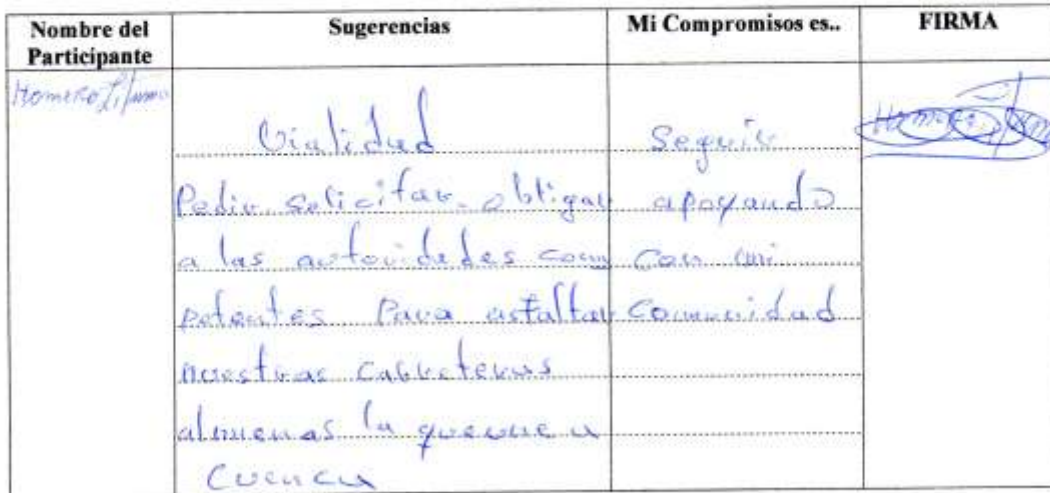 Nombre del Participante
Sugerencias
Mi Compromisos es..
FIRMA
Homero
Vialidad
Pedir. solicitar. obligar
a las autoridades com
petentes Para asfaltar
nuestras carreteras
almenas la que une a
Cuenca
Seguir
apoyando
con mi
comunidad